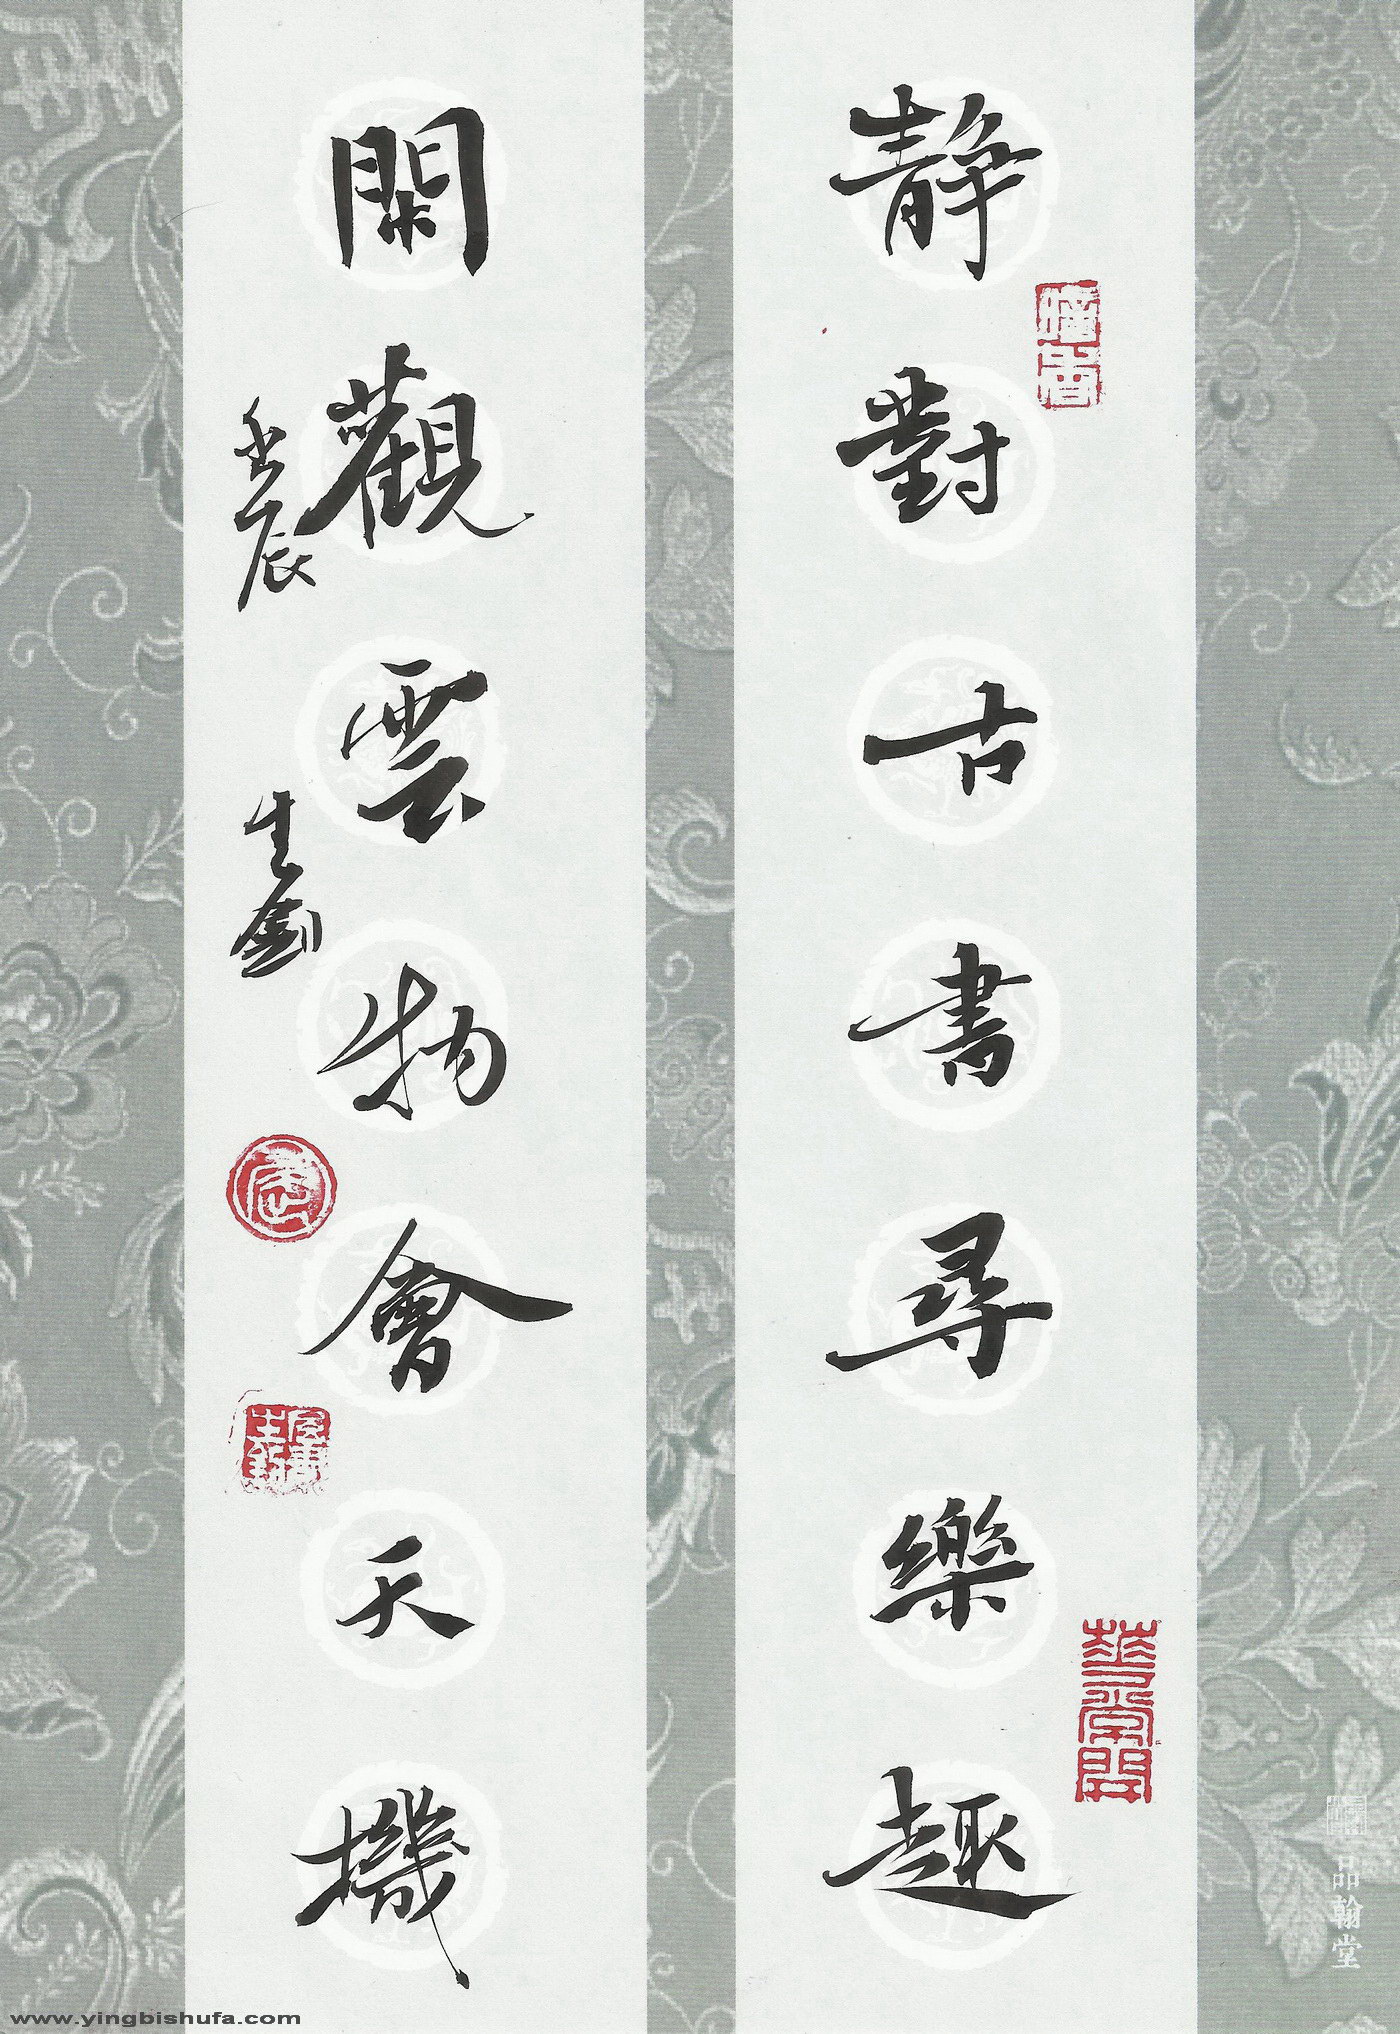 静對古書尋樂趣
閑觀雲物會天機
壬辰
生劍
品翰堂
www.yingbishufa.com